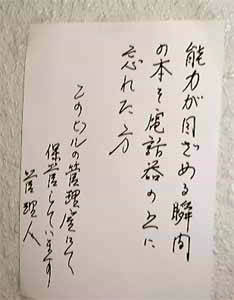 能力が目ざめる瞬間
の本を電話器の上に
忘れた方
このビルの管理室にて
保管しています
管理人